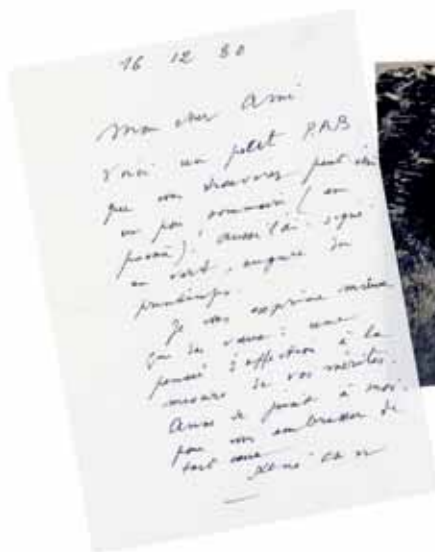 16 12 80
Mon cher Ami
Voici un petit P.A.B
que vous trouverez peut être
un peu sommaire (un
), aussi l'ai signé
en vert, augure du
printemps.
Je vous exprime mieux
que des vœux : une
pensée d'affection à la
mesure de vos mérites.
à moi
pour vous embrasser de
tout cœur